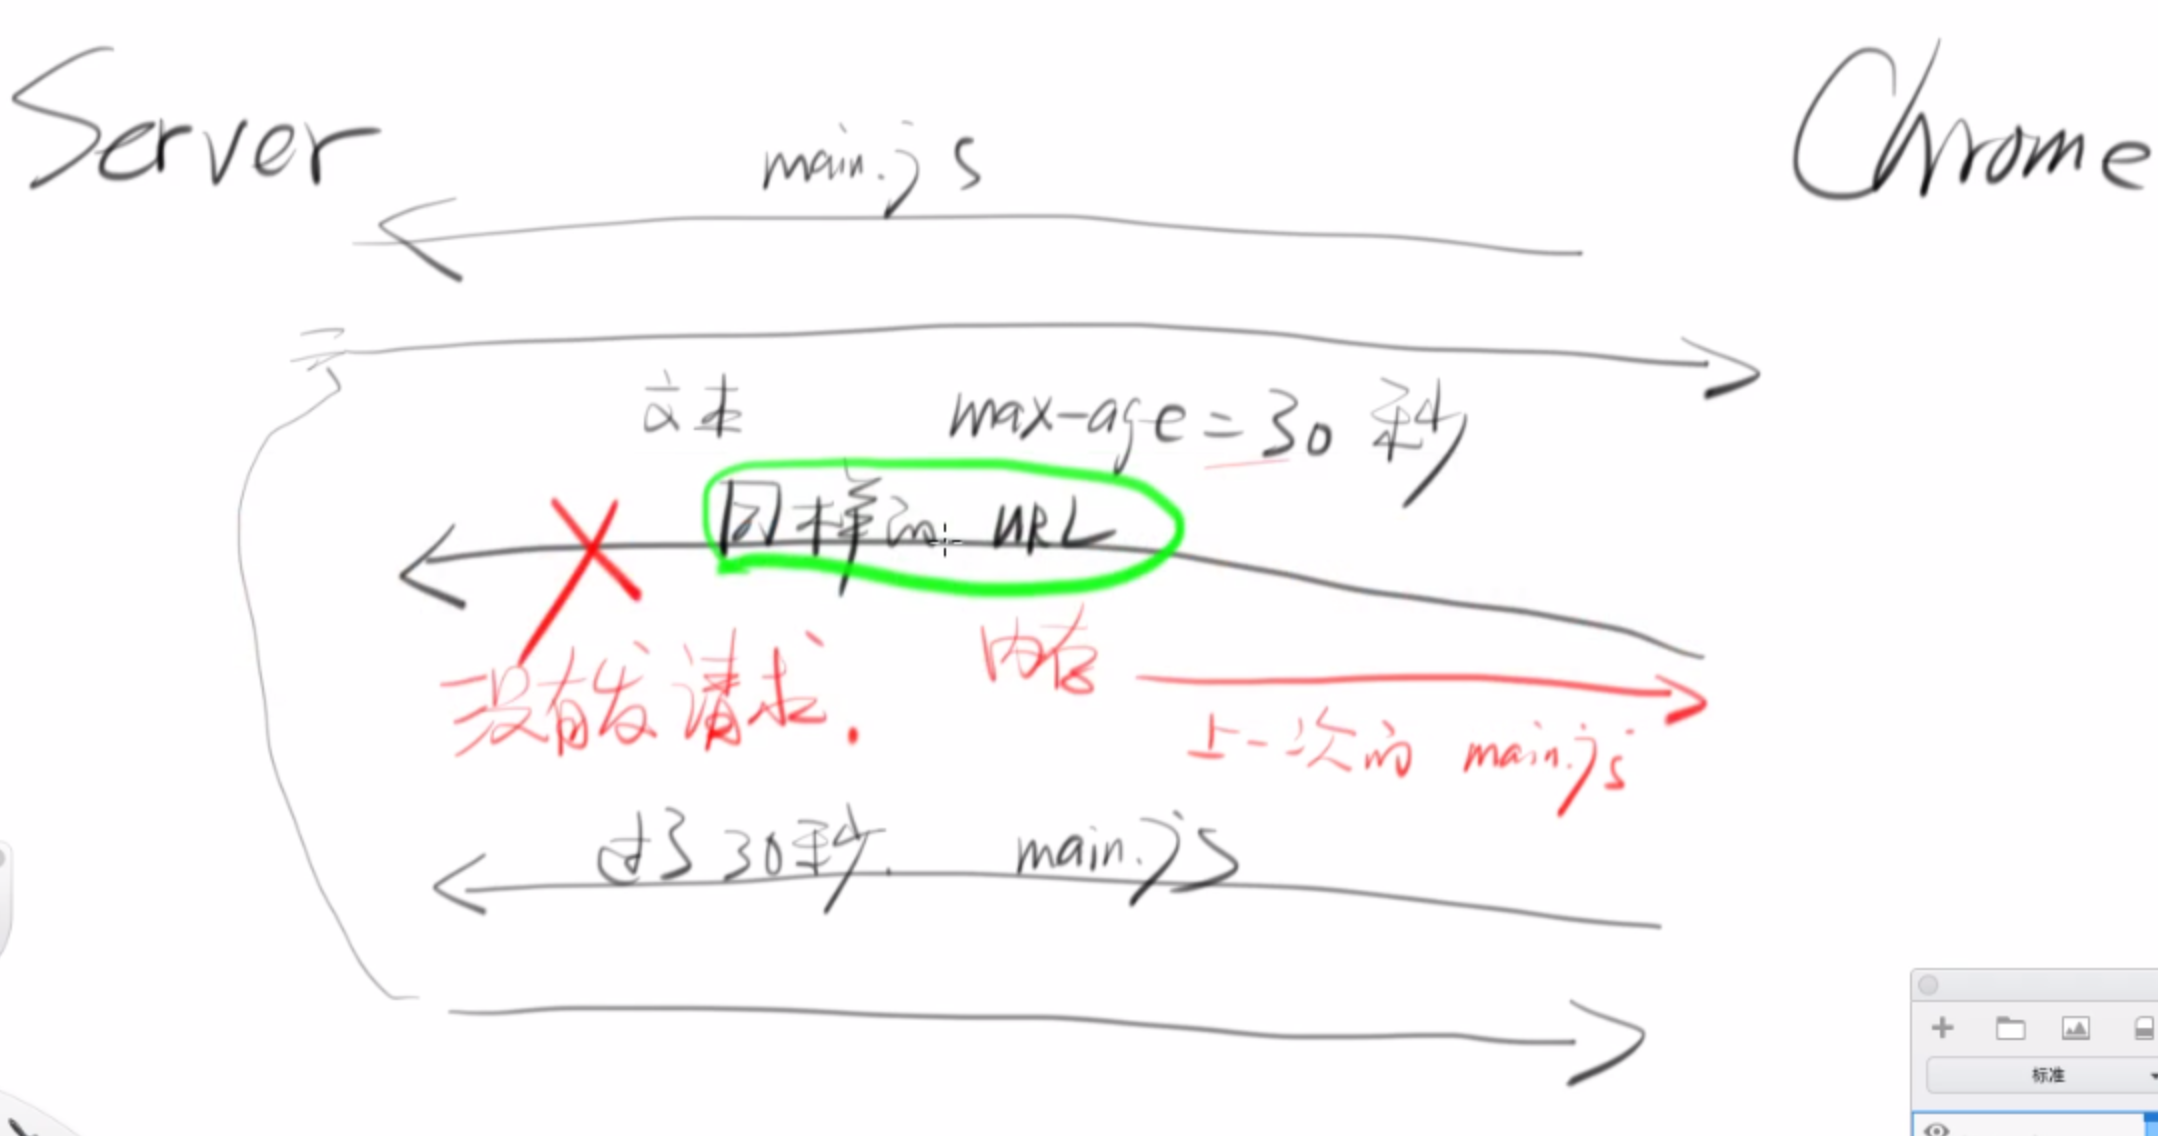 Server
Chrome
main.js
max-age = 30 秒
同样的 URL
没有发请求.
内存
上一次的 main.js
过了 30秒. main.js
标准